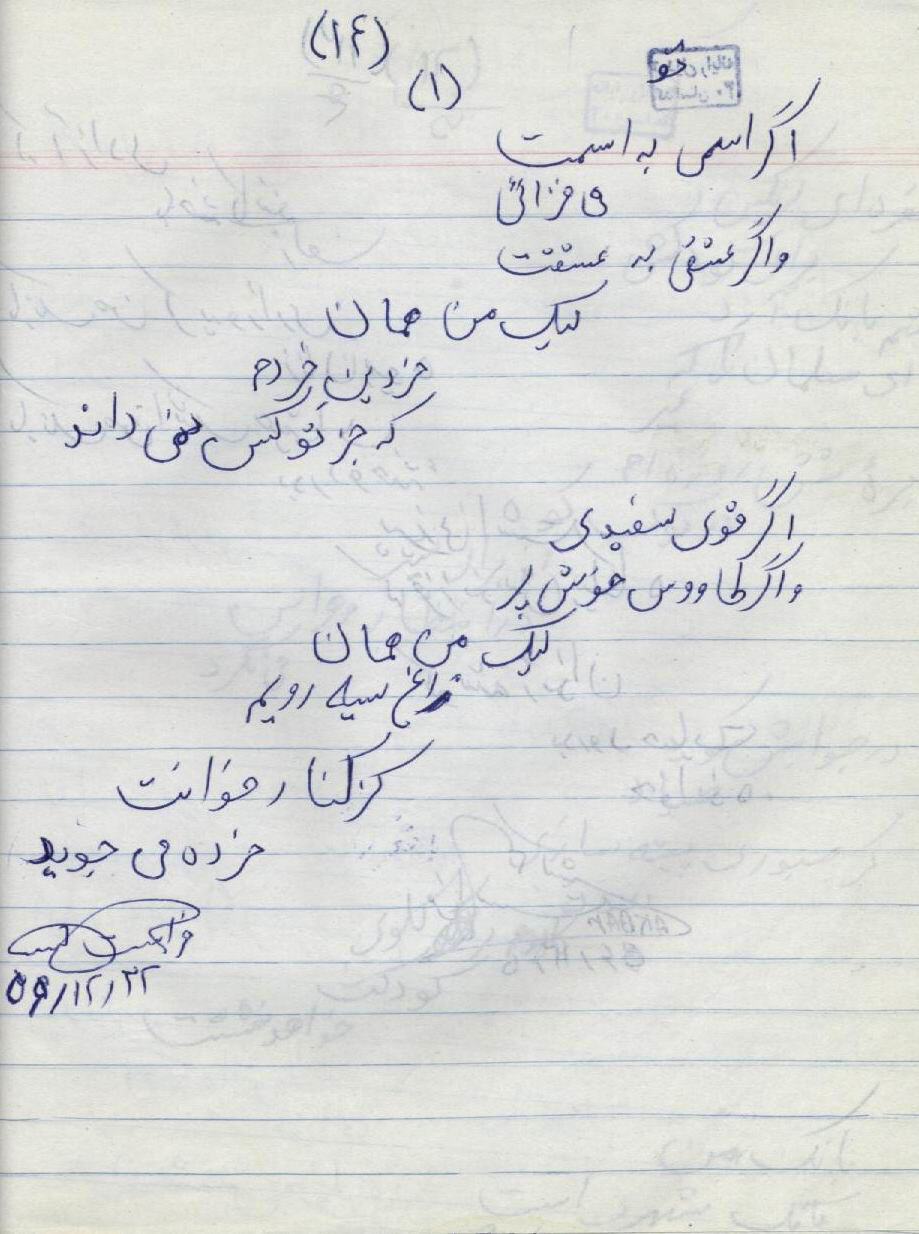 (۱۴)
تو
(۱)
اگر اسمی به اسمت
می فزائی
واگر عشقی به عشقت
لیک من همان
خردین خردم
که جز تو کس نمی داند
اگر قوی سفیدی
واگر طاووس خوش پر
لیک من همان
زاغ سیه رویم
کز کنار خوانت
خرده می جوید
۵۹/۱۲/۲۲